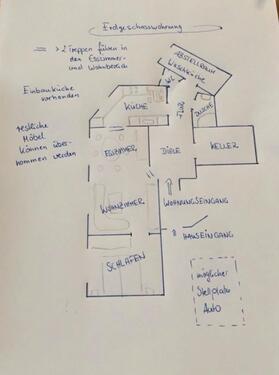 Erdgeschosswohnung
=> 2 Treppen führen in
den Esszimmer-
und Wohnbereich
ABSTELLRAUM
Waschküche
WC
Einbauküche
vorhanden
KÜCHE
FLUR
DUSCHE
restliche
Möbel
können über-
nommen werden
ESZIMMER
DIELE
KELLER
WOHNZIMMER
WOHNUNGSEINGANG
HAUSEINGANG
SCHLAFEN
möglicher
Stellplatz
Auto